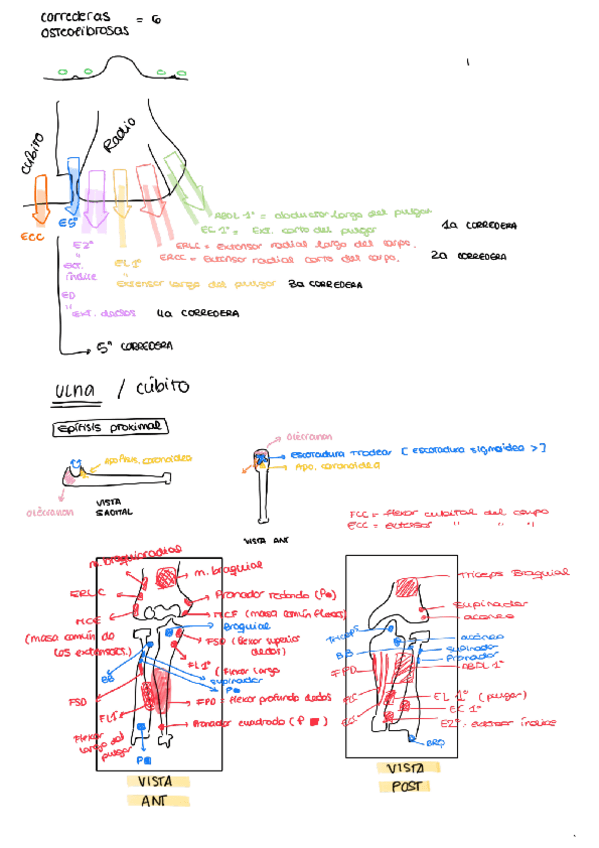 correderas = 6
osteofibrosas
cúbito
Radio
ECC
E5º
ABDL 1º = abductor largo del pulgar
EC 1º = Ext. corto del pulgar
1a CORREDERA
ERLC = Extensor radial largo del carpo.
ERCC = Extensor radial corto del carpo.
2a CORREDERA
E2º
"
Ext.
índice
EL 1º
"
extensor largo del pulgar
3a CORREDERA
ED
"
Ext. dedos
4a CORREDERA
5ª CORREDERA
ULNA / CÚBITO
Epífisis proximal
coronoidea
olécranon
VISTA
SAGITAL
olécranon
Escotadura troclear [escotadura sigmoidea >]
Apo. coronoidea
VISTA ANT
FCC = flexor cubital del carpo
ECC = extensor " " "
m. braquiorradial
m. braquial
ERLC
Pronador redondo (P●)
MCE
(masa común de
los extensores.)
MCF (masa común flexores)
Braquial
FSD (flexor superior
dedos)
FL1º
(flexor largo
BB
supinador
P●
FSD
FPD = flexor profundo dedos
FL1º
Flexor
largo del
pulgar
Pronador cuadrado (P ■)
P■
VISTA
ANT
Triceps Braquial
Supinador
ancóneo
Triceps
ancóneo
BB
supinador
Pronador
FPD
ABDL 1º
EL 1º (pulgar)
EC 1º
E2º = extensor índice
BRQ
VISTA
POST